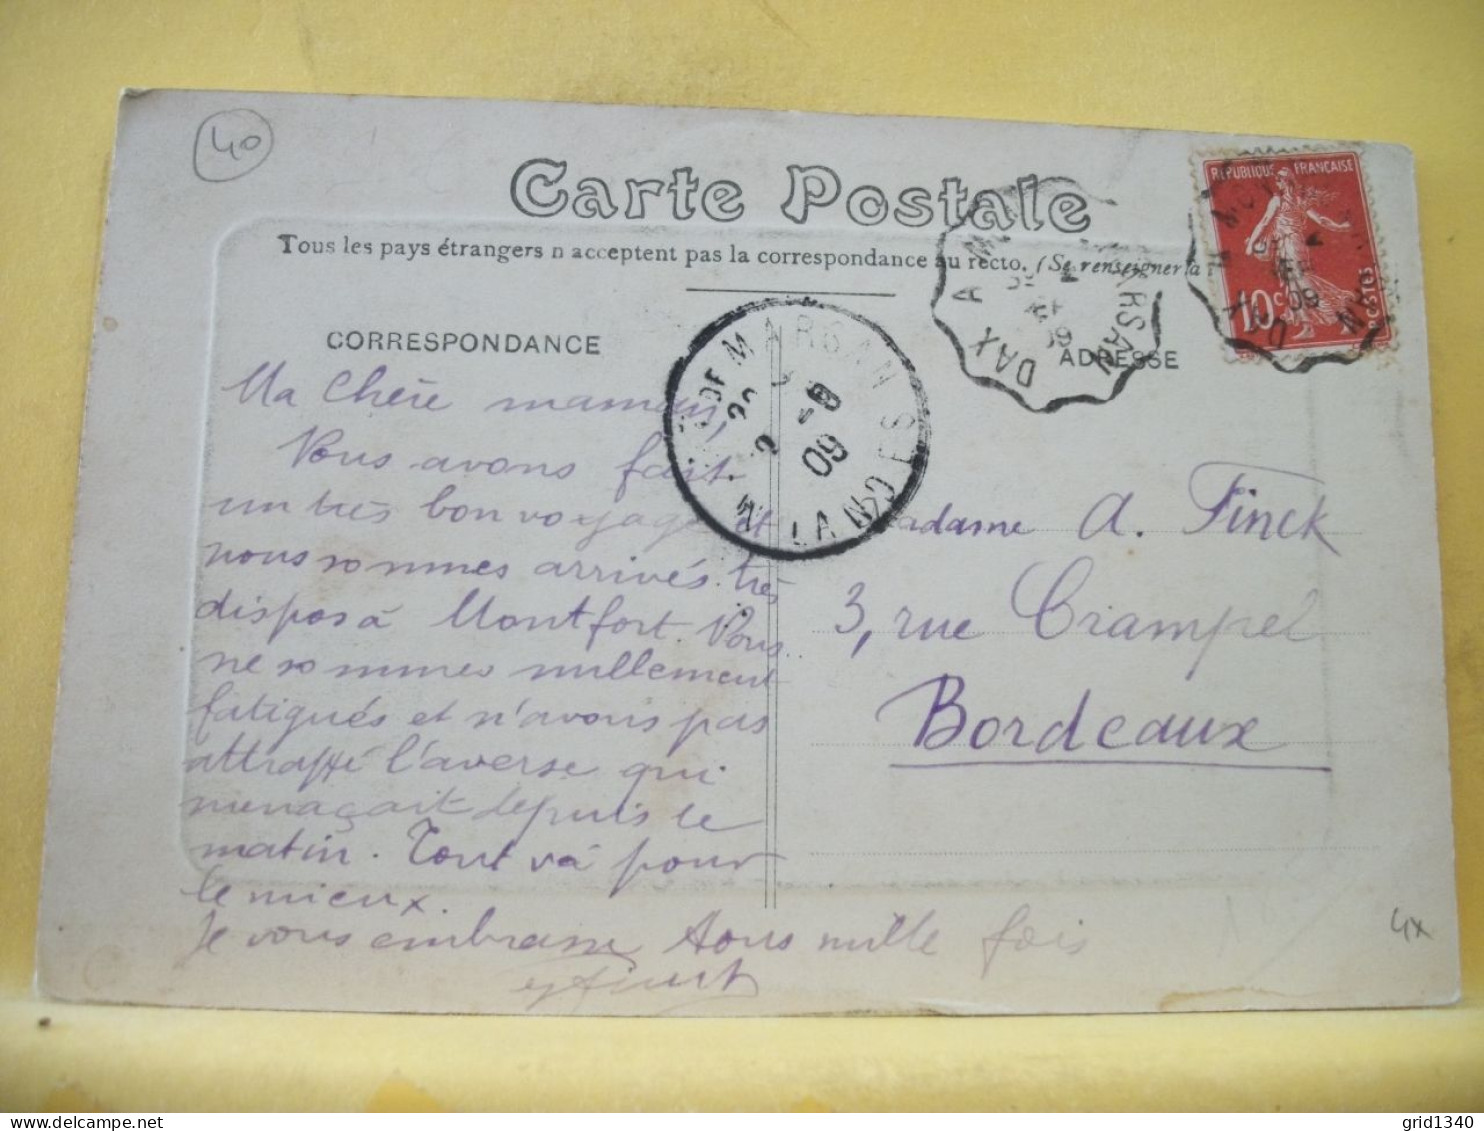 40
Carte Postale
Tous les pays étrangers n acceptent pas la correspondance au recto. (Se renseigner à
CORRESPONDANCE
ADRESSE
RÉPUBLIQUE FRANÇAISE
10c
POSTES
DAX A M RSAN
09
DE MARSAN
LANDES
2 - 8
09
DAX A M AN
09
Ma Chère maman,
Vous avons fait
un très bon voyage et
nous sommes arrivés très
dispos à Montfort. Vous
ne sommes nullement
fatigués et n'avons pas
attrappé l'averse qui
menaçait depuis le
matin. Tout va pour
le mieux.
Je vous embrasse tous mille fois
Madame A. Finck
3, rue Crampel
Bordeaux
4x
grid1340